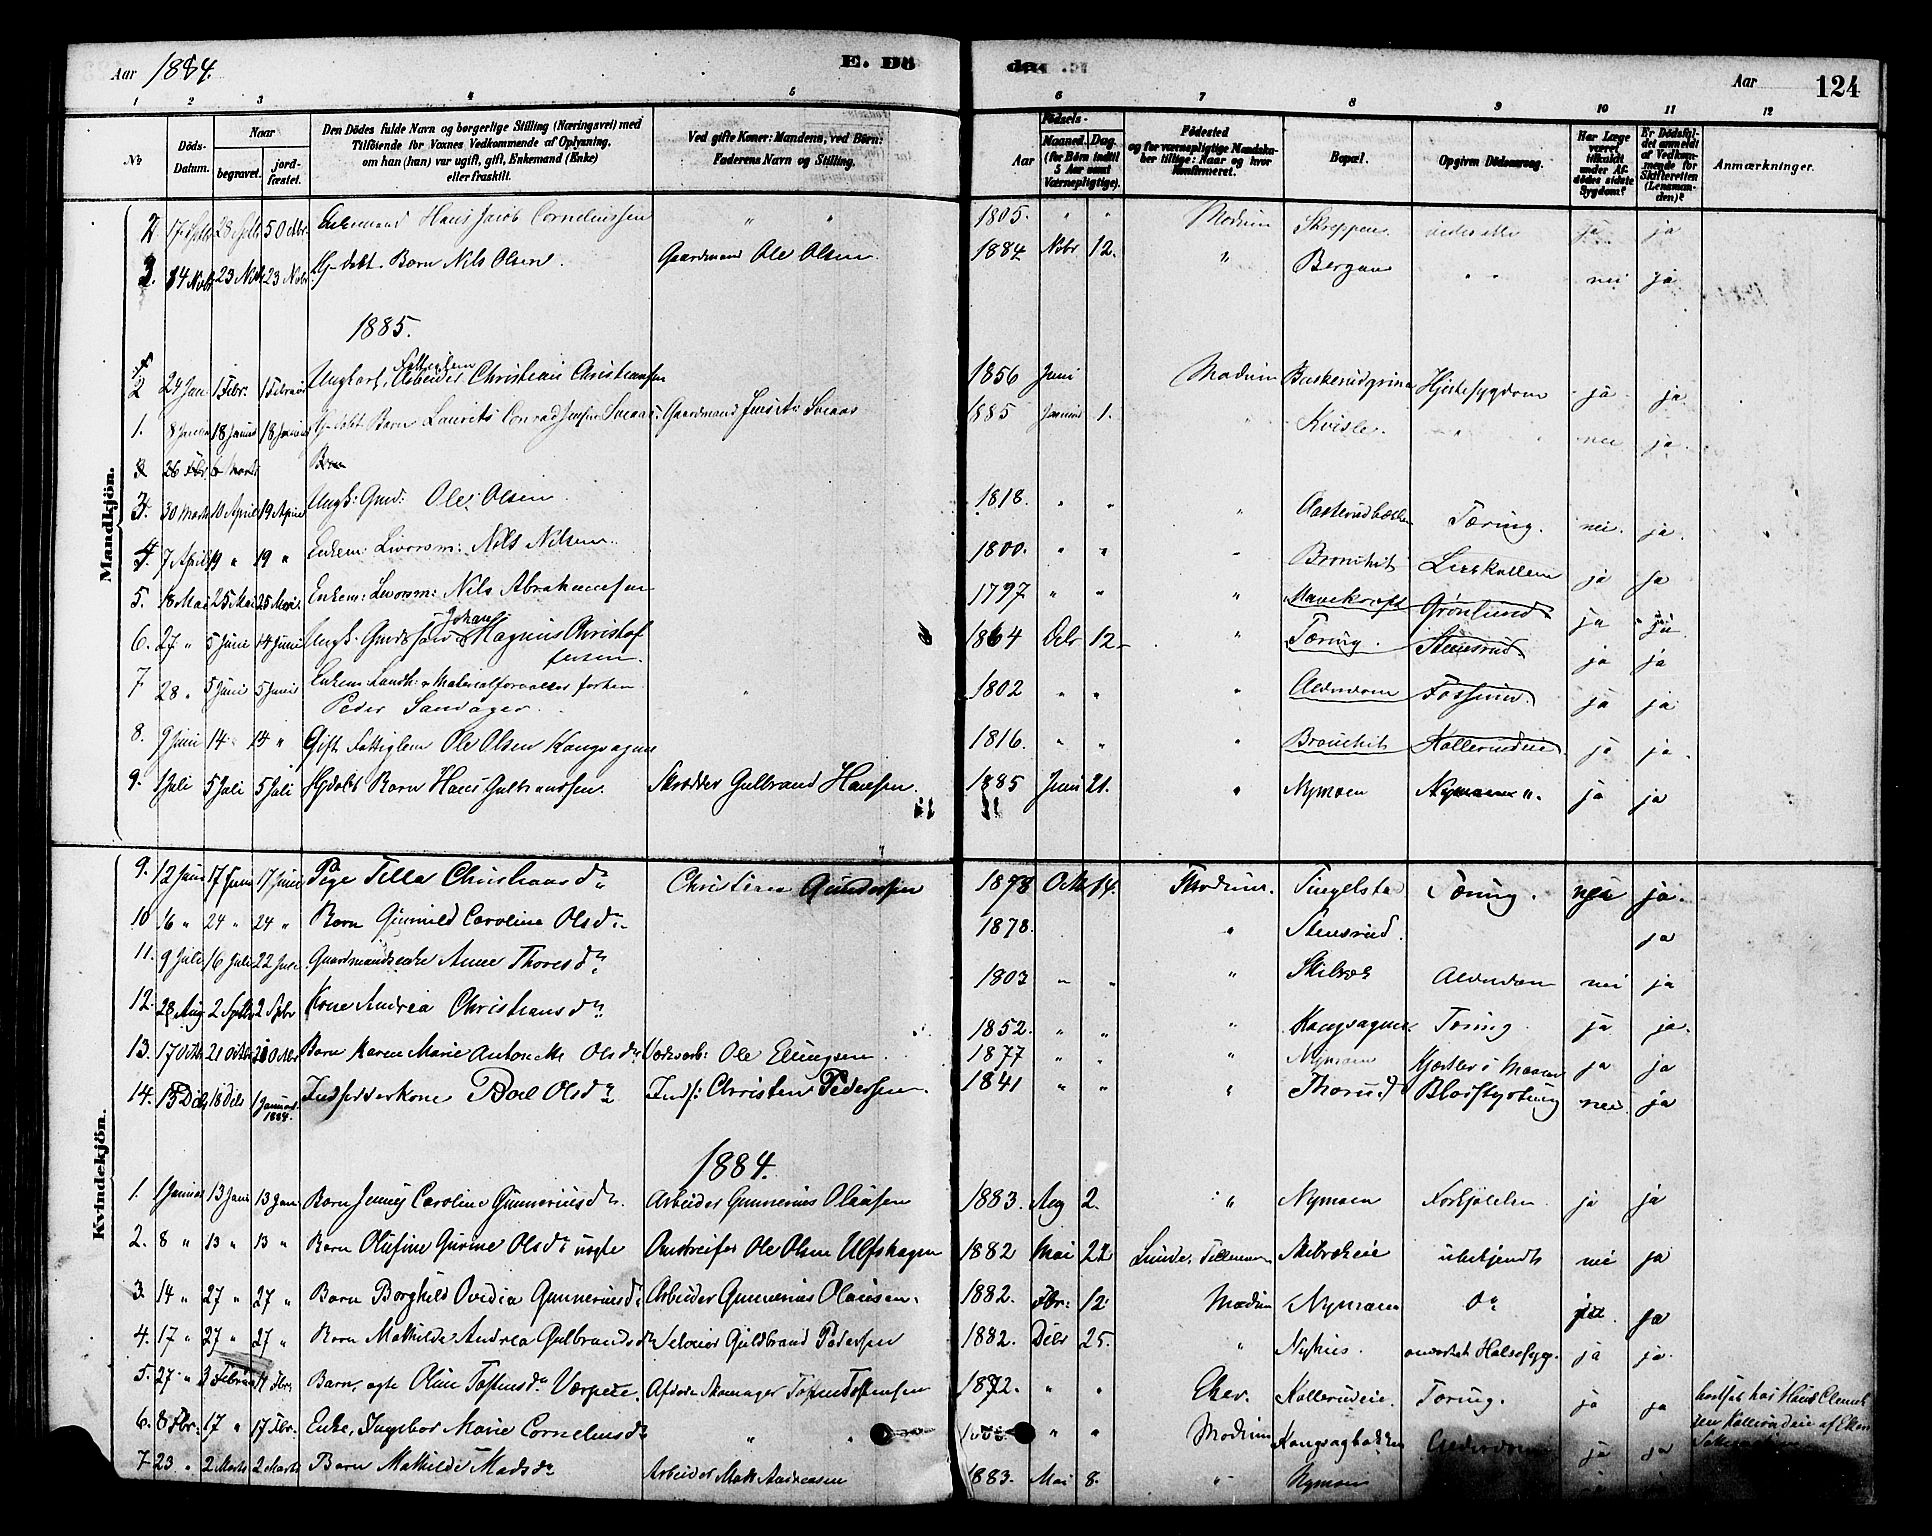 Aar 1884.
E. Dö
de.
Aar
124
1 2 3 4 5 6 7 8 9 10 11 12
No
Döds-Datum.
Naar
begravet.
jord-fæstet.
Den Dödes fulde Navn og borgerlige Stilling (Næringsvei) med Tilföiende for Voxnes Vedkommende af Oplysning, om han (hun) var ugift, gift, Enkemand (Enke) eller fraskilt.
Ved gifte Koner: Mandens, ved Börn: Faderens Navn og Stilling.
Födsels-
Aar
Maaned Dag
(for Börn indtil 5 Aar samt Værnepligtige).
Födested
og for værnepligtige Mandskaber tillige: Naar og hvor Konfirmeret.
Bopæl.
Opgiven Dödsaarsag.
Har Læge været tilkaldt under Afdödes sidste Sygdom?
Er Dödsfaldet anmeldt af Vedkommende for Skifteretten (Lensmanden)?
Anmærkninger.
Mandkjön.
2. 17 Septb 28 Septb 5 Octbr. Enkemand Hans Jacob Corneliussen " " 1805. " " Modum Skreppen ja ja
3. 14 Novbr 23 Novbr 23 Novbr Hj-døbt. Barn Nils Olsen. Gaardmand Ole Olsen 1884. Novbr 12. " Bergan " " nei ja
1885.
2 24 Jan 1 Febr. 1 Februar Ungkarl, Arbeider Christian Christiansen 1856 Juni Modum Buskerudgrina Hjertesygdom ja ja
1. 8 Januar 18 Januar 18 Januar Hj-døbt Barn Laurits Conrad Jensen Gaardmand 1885 Januar 1. Kvisle. " nei ja.
3 26 Fbr 6 Marts Barn
3. 30 Marts 10 April 19 April Ungk: Gmd: Ole Olsen 1818. " " " Tæring. nei. ja.
4. 7 April 19 " 19 " Enkem: Livorsm: Nils Nilsen. 1800. " " " Bronchit Lerskallen ja ja
5. 18 Mai 25 Mai 25 Mai. Enkem: Livorsm: Nils Abrahamsen 1797 " " " Mavekræft Grønlund ja ja
6. 27 " 5 Juni 14 Juni Ungk. Gmdssøn Johan Magnus Christof
fersen. 1864 Octb 12. " Tæring. Stensrud. ja ja
7 28 " 5 Juni 5 Juni Enkem: Landh: & Materialforvalter forhen
Peder Sandager. " 1802 " " " Alderdom Fossum. ja ja
8. 9 Juni 14 " 14 " Gift Fattiglem Ole Olsen Kongsagene 1816. " " " Bronchit Kallerudeie ja ja.
9. 1 Juli 5 Juli 5 Juli Hjdøbt Barn Hans Gulbrandsen. Skrædder Gulbrand Hansen. 1885 Juni 21. " Nymoen Nymoen ". ja ja
Kvindekjön.
9. 12 Juni 17 Juni 17 Juni Pige Tilla Christiansdr Christian Gundersen 1878 Octb 14. Modum. Tingelstad Tæring. nei ja.
10 16 " 24 " 24 " Barn Gunnild Caroline Olsdr. 1878. " Stensrud. ja
11. 9 Juli 16 Juli 22 Juli Gaardmandsenke Anne Thoresdr. 1803 " " " Skilbræk Alderdom nei ja
12. 28 Aug 2 Septbr 2 Sptbr Kone Andrea Christiansdr. 1852. " " " Kongsagene Tæring. ja ja.
13. 17 Octbr 21 Octbr 21 Octbr Barn Karen Marie Antonette Olsdr Ole Ellingsen 1877 " " " Nymoen ja ja
14. 15 Decb 18 Decb 1 Januar 1884. Indsidderkone Boel Olsdr Inds: Christen Pedersen. 1841 " " " Thorud Blodstyrtning nei ja
1884.
1. 1 Januar 13 Jan 13 Jan Barn Jenny Caroline Gunneriusdr. Arbeider Gunnerius Olausen 1883. Aug 2. " Nymoen Forkjølelse ja ja
2. 8 " 13 " 13 " Barn Olufine Gurine Olsdr uægte Omstreifer Ole Olsen Ulfshagen 1882 Mai 22 Lunde, Tellemarken Skibrækeie ubekjendt nei ja
3. 14 " 27 " 27 " Barn Borghild Ovedia Gunneriusdr Arbeider Gunnerius Olausen. 1882. Fbr: 12 Modum Nymoen Do ja ja
4. 17 " 27 " 27 " Barn Mathilde Andrea Gulbrandsdr Selveier Guldbrand Pedersen 1882. Decbr 25. " Nyhus. ondartet Halsesyg. ja ja.
5. 27 " 3 Februar 17 Fbr. Barn, ægte Oline Tostensdr Værpeie. Afdøde Skomager Tosten Tostensen 1872. " " Eker. Kallerudeie. Tæring. ja ja
6. 8 Fbr. 17 " 17 Fbr. Enke, Ingebor Marie Corneliusdr " " " " Modum Kongsagbakken Alderdom ja ja
7. 23 " 2 Marts 2 Marts Barn Mathilde Madsdr Arbeider Mads Andreasen 1883. Mai 8. " Nymoen